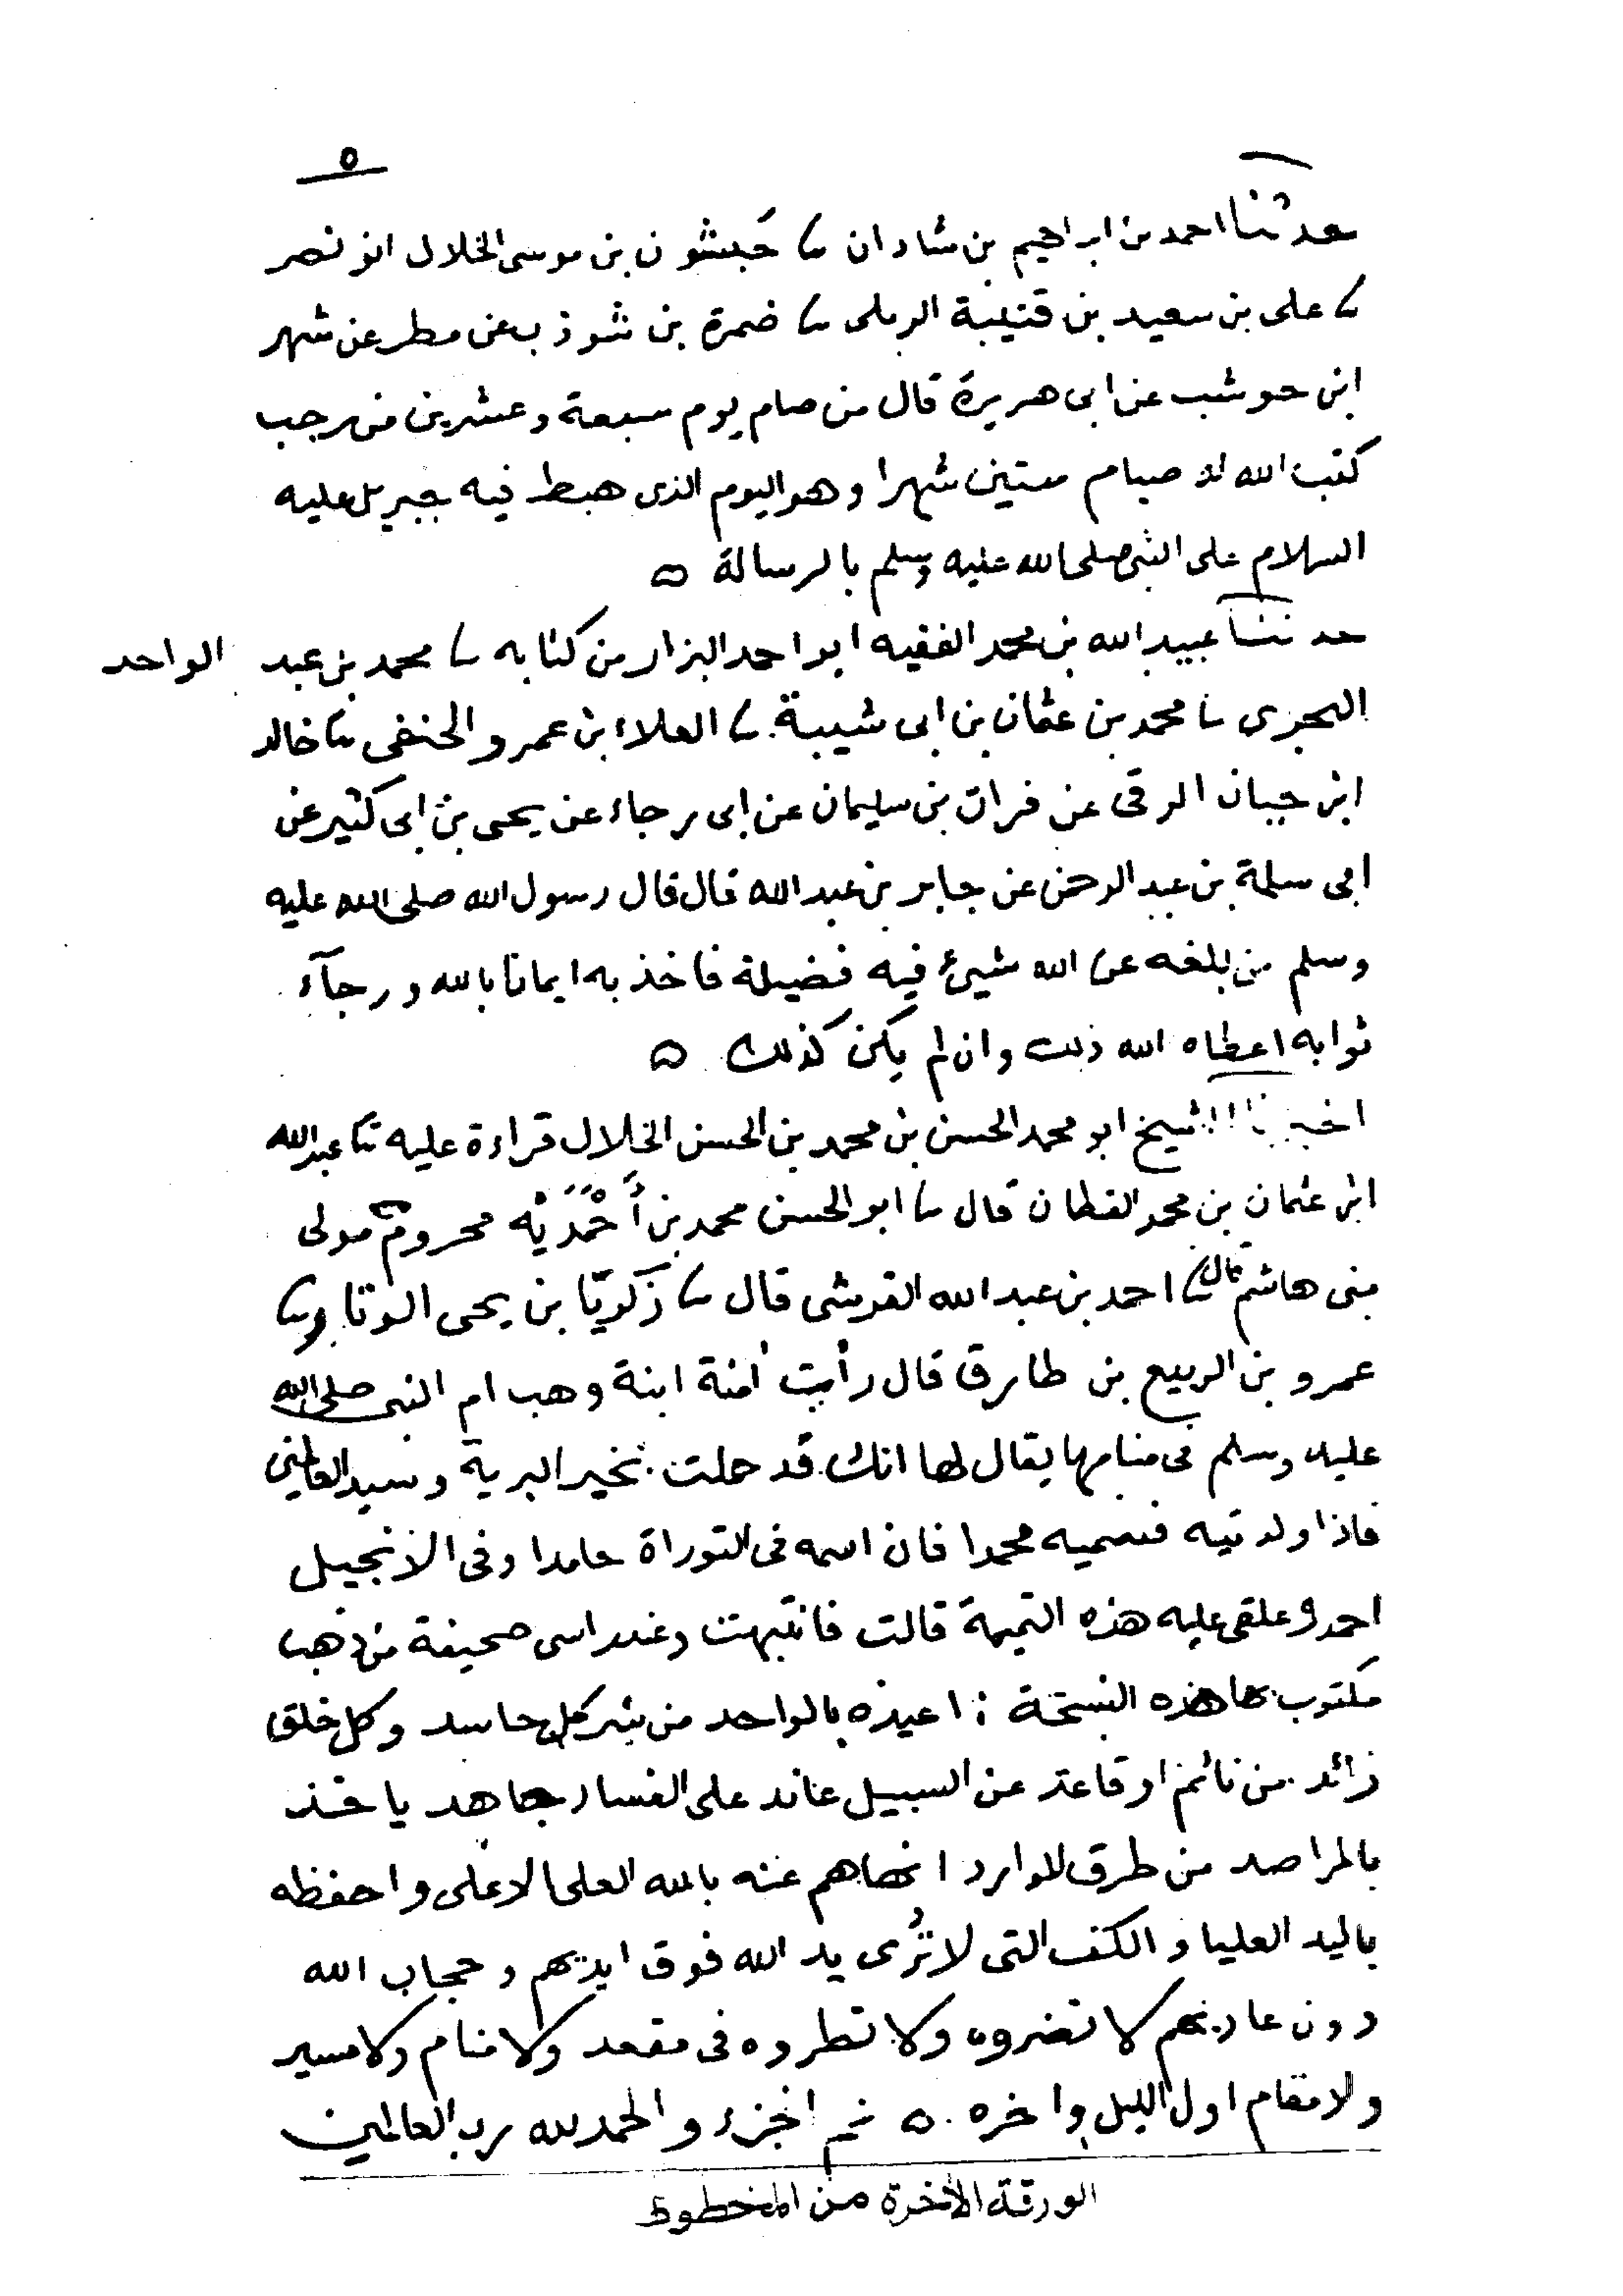 ٥
حدثنا احمد بن ابراهيم بن شاذان ثنا حَبشون بن موسى الخلال ابو نصر
ثنا على بن سعيد بن قتيبة الرملى ثنا ضمرة بن شوذب عن مطر عن شهر
ابن حوشب عن ابى هريرة قال من صام يوم سبعة وعشرين من رجب
كتب الله له صيام ستين شهرا وهو اليوم الذى هبط فيه جبريل عليه
السلام على النبى صلى الله عليه وسلم بالرسالة ه
حدثنا عبيد الله بن محمد الفقيه ابو احمد البزار من كتابه ثنا محمد بن عبد الواحد
ثنا محمد بن عثمان بن ابى شيبة ثنا العلاء بن عمرو الحنفى ثنا خالد
ابن حيان الرقى عن فرات بن سليمان عن ابى رجاء عن يحى بن ابى كثير عن
ابى سلمة بن عبد الرحمن عن جابر بن عبد الله قال قال رسول الله صلى الله عليه
وسلم من بلغه عن الله شيئ فيه فضيلة فاخذ به ايمانا بالله ورجآء
ثوابه اعطاه الله ذلك وان لم يكن كذلك ه
اخبرنا الشيخ ابو محمد الحسن بن محمد بن الحسن الخلال قراءة عليه ثنا عبد الله
ابن عثمان بن محمد القطان قال ثنا ابو الحسن محمد بن أَحْمَدَيْه محروم مولى
بنى هاشم قال ثنا احمد بن عبد الله القرشى قال ثنا زَكريّا بن يحى الوقار ثنا
عمرو بن الربيع بن طارق قال رأيت امنة ابنة وهب ام النبى صلى الله
عليه وسلم فى منامها يقال لها انك قد حملت بخير البرية وسيد العالمين
فاذا ولدتيه فسميه محمدا فان اسمه فى التوراة حامدا وفى الانجيل
احمد وعلقى عليه هذه التميمة قالت فانتبهت وعند راسى صحيفة من ذهب
مكتوب بها هذه النسخة : اعيذه بالواحد من شر كل حاسد وكل خلق
زائد من نائم او قاعد عن السبيل عاند على الفساد جاهد ياخذ
بالمراصد من طرق الموارد انهاهم عنه بالله العلى الاعلى واحفظه
باليد العليا والكف التى لا تُرى يد الله فوق ايديهم وحجاب الله
دون عاديهم لا تضروه ولا تطردوه فى مقعد ولا منام ولا مسير
ولا مقام اول الليل واخره ه تم الجزء والحمد لله رب العالمين
الورقة الأخرة من المخطوط